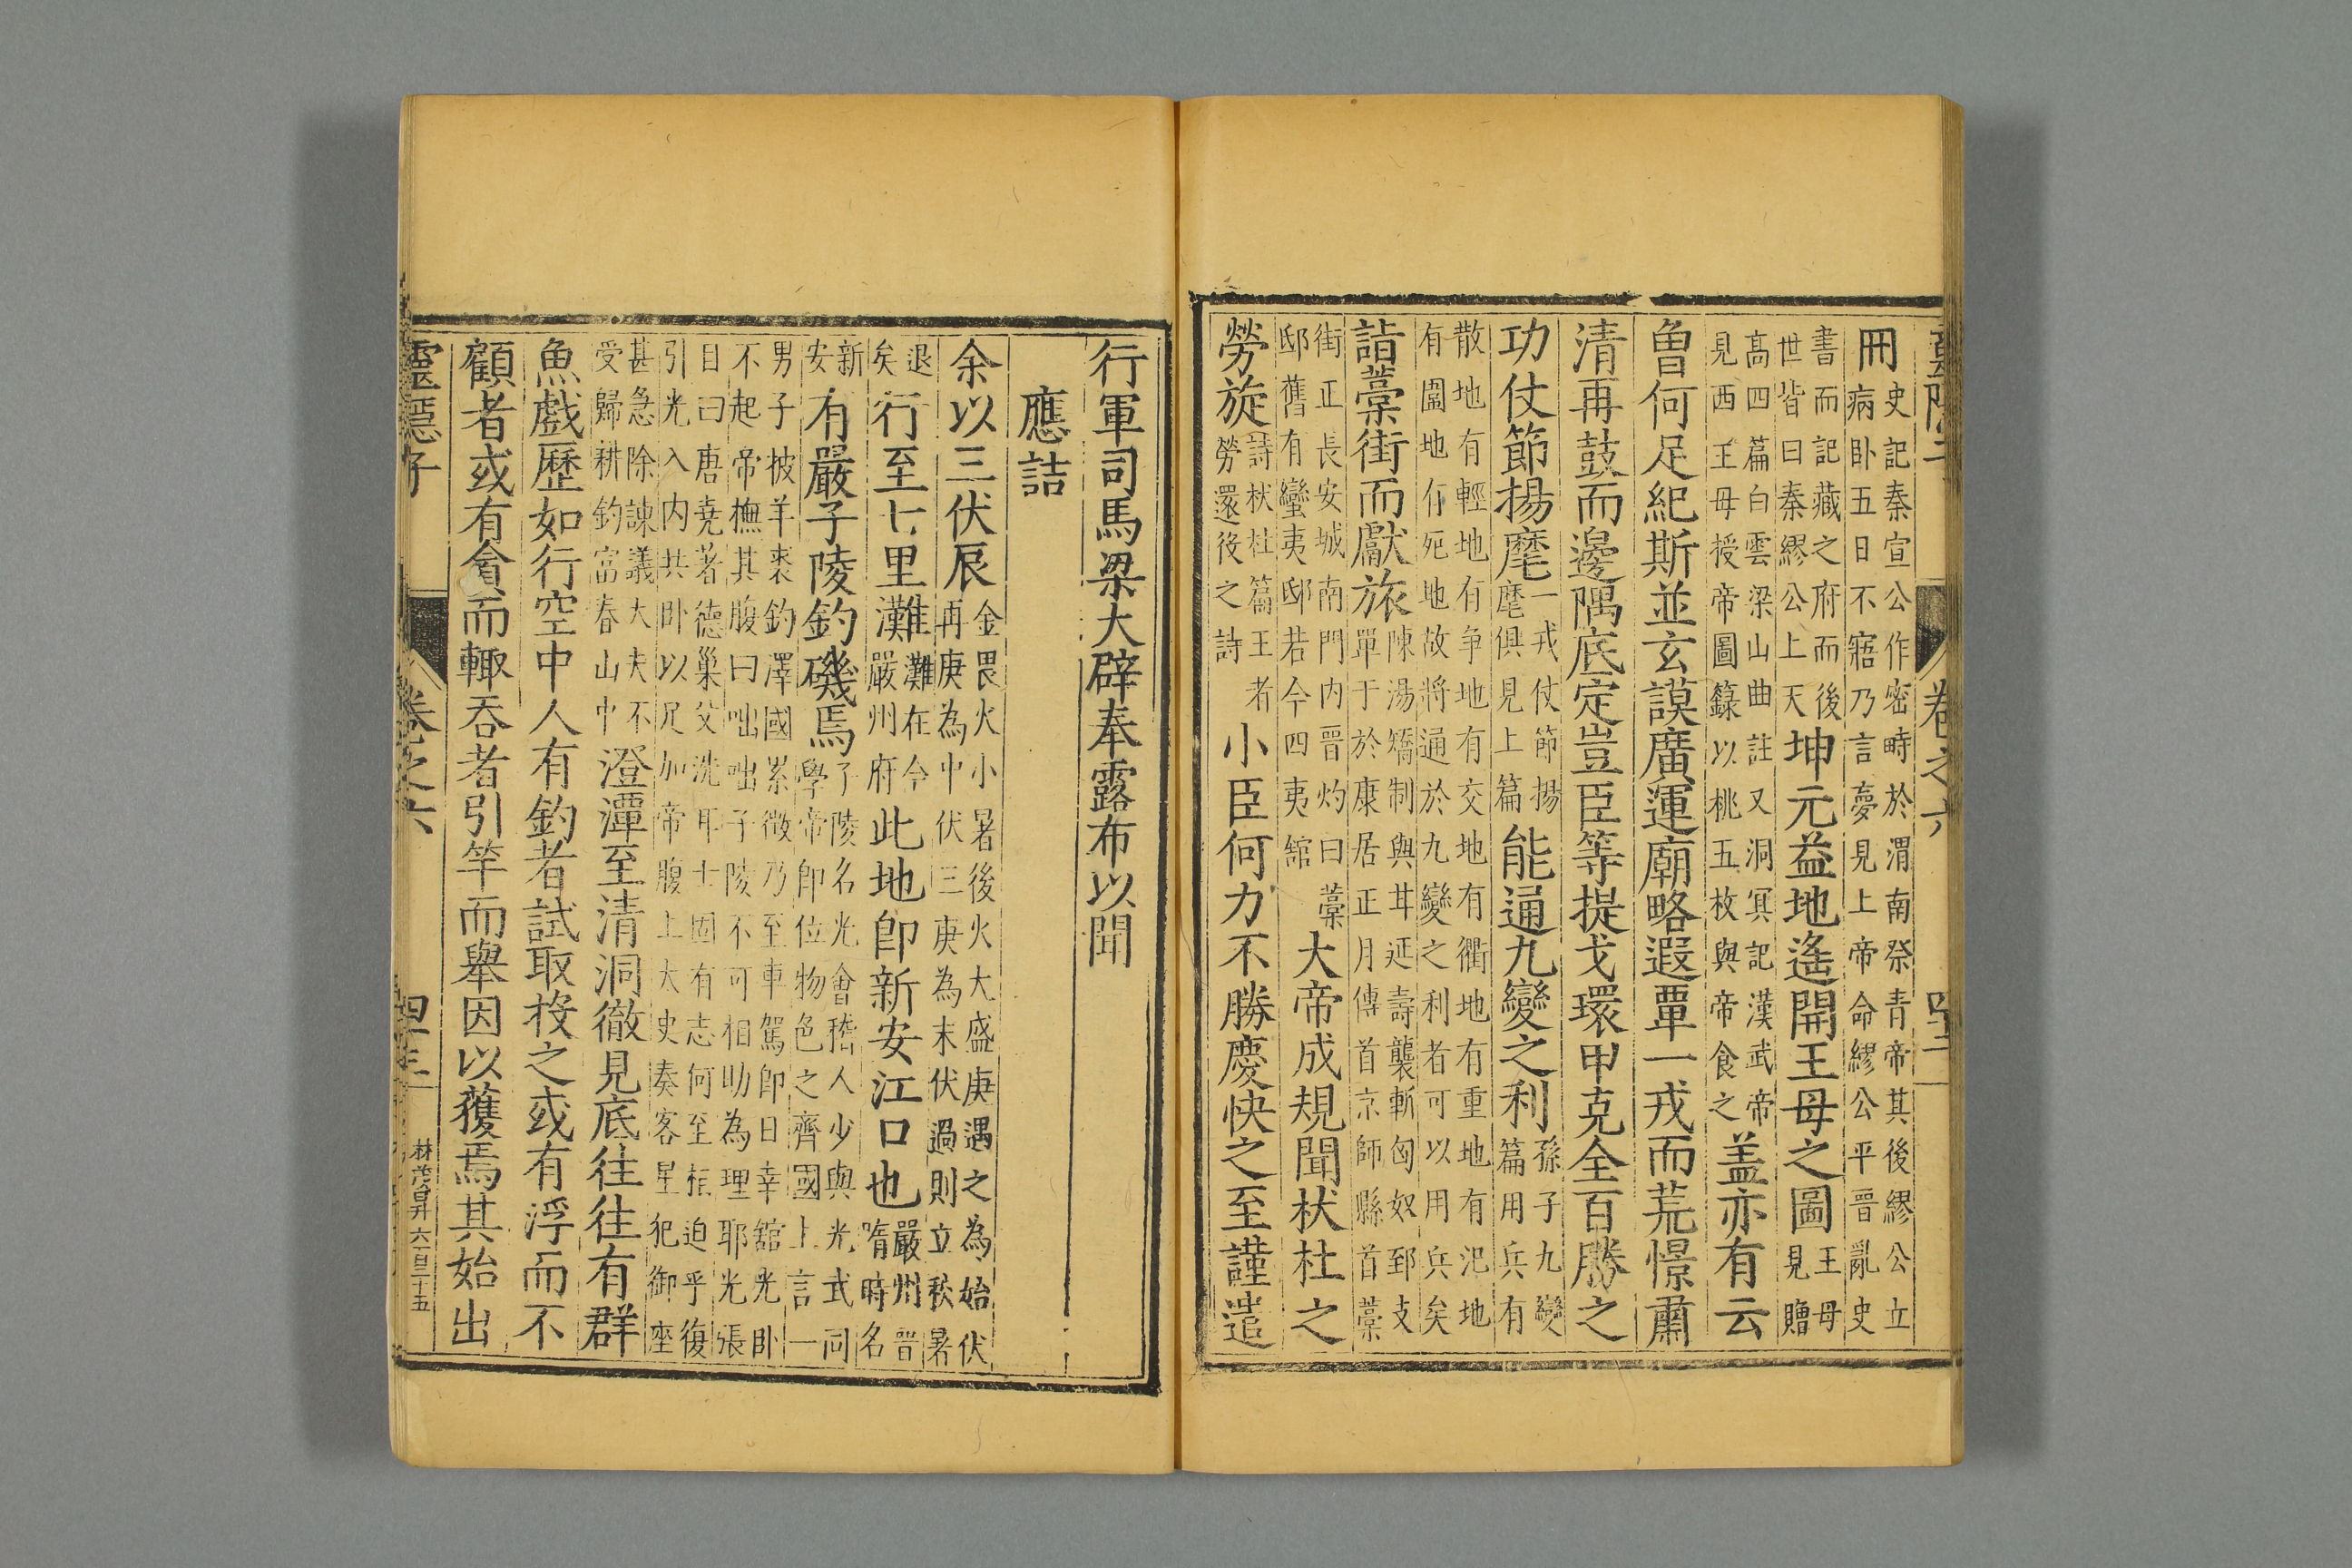 靈隱子 卷之六 四十二
冊
史記秦宣公作密畤於渭南祭青帝其後繆公立
病卧五日不寤乃言夢見上帝命繆公平晉亂史
書而記藏之府而後
世皆曰秦繆公上天
坤元益地遙開王母之圖
王母
見贈
髙四篇白雲梁山曲註又洞冥記漢武帝
見西王母授帝圖籙以桃五枚與帝食之
盖亦有云
曾何足紀斯並玄謨廣運廟略遐覃一戎而荒憬肅
清再鼓而邊隅底定豈臣等提戈環甲克全百勝之
功仗節揚麾
一戎仗節揚
麾俱見上篇
能通九變之利
孫子九變
篇用兵有
散地有輕地有争地有交地有衢地有重地有汜地
有圍地有死地故將通於九變之利者可以用兵矣
詣藁街而獻旅
陳湯矯制與甘延壽襲斬匈奴郅支
單于於康居正月傳首京師縣首藁
街正長安城南門内晋灼曰藁
邸舊有蠻夷邸若今四夷舘
大帝成規聞杕杜之
勞旋
詩杕杜篇王者
勞還役之詩
小臣何力不勝慶快之至謹遣
行軍司馬梁大辟奉露布以聞
應詰
余以三伏辰
金畏火小暑後火大盛庚遇之為始伏
再庚為中伏三庚為末伏過則立秋暑
退
矣
行至七里灘
灘在今
嚴州府
此地卽新安江口也
嚴州晉
隋時名
新
安
有嚴子陵釣磯焉
子陵名光會稽人少與光武同
學帝卽位物色之齊國上言一
男子披羊裘釣澤國累徵乃至車駕卽日幸舘光卧
不起帝撫其腹曰咄咄子陵不可相助為理耶光張
目曰唐堯著德巢父洗耳士固有志何至相迫乎復
引光入内共卧以足加帝腹上太史奏客星犯御座
甚急除諫議大夫不
受歸耕釣富春山中
澄潭至清洞徹見底往往有群
魚戲歷如行空中人有釣者試取投之或有浮而不
顧者或有貪而輙吞者引竿而舉因以獲焉其始出
靈隱子 卷之六 四十三 林茂昇 六百三十五